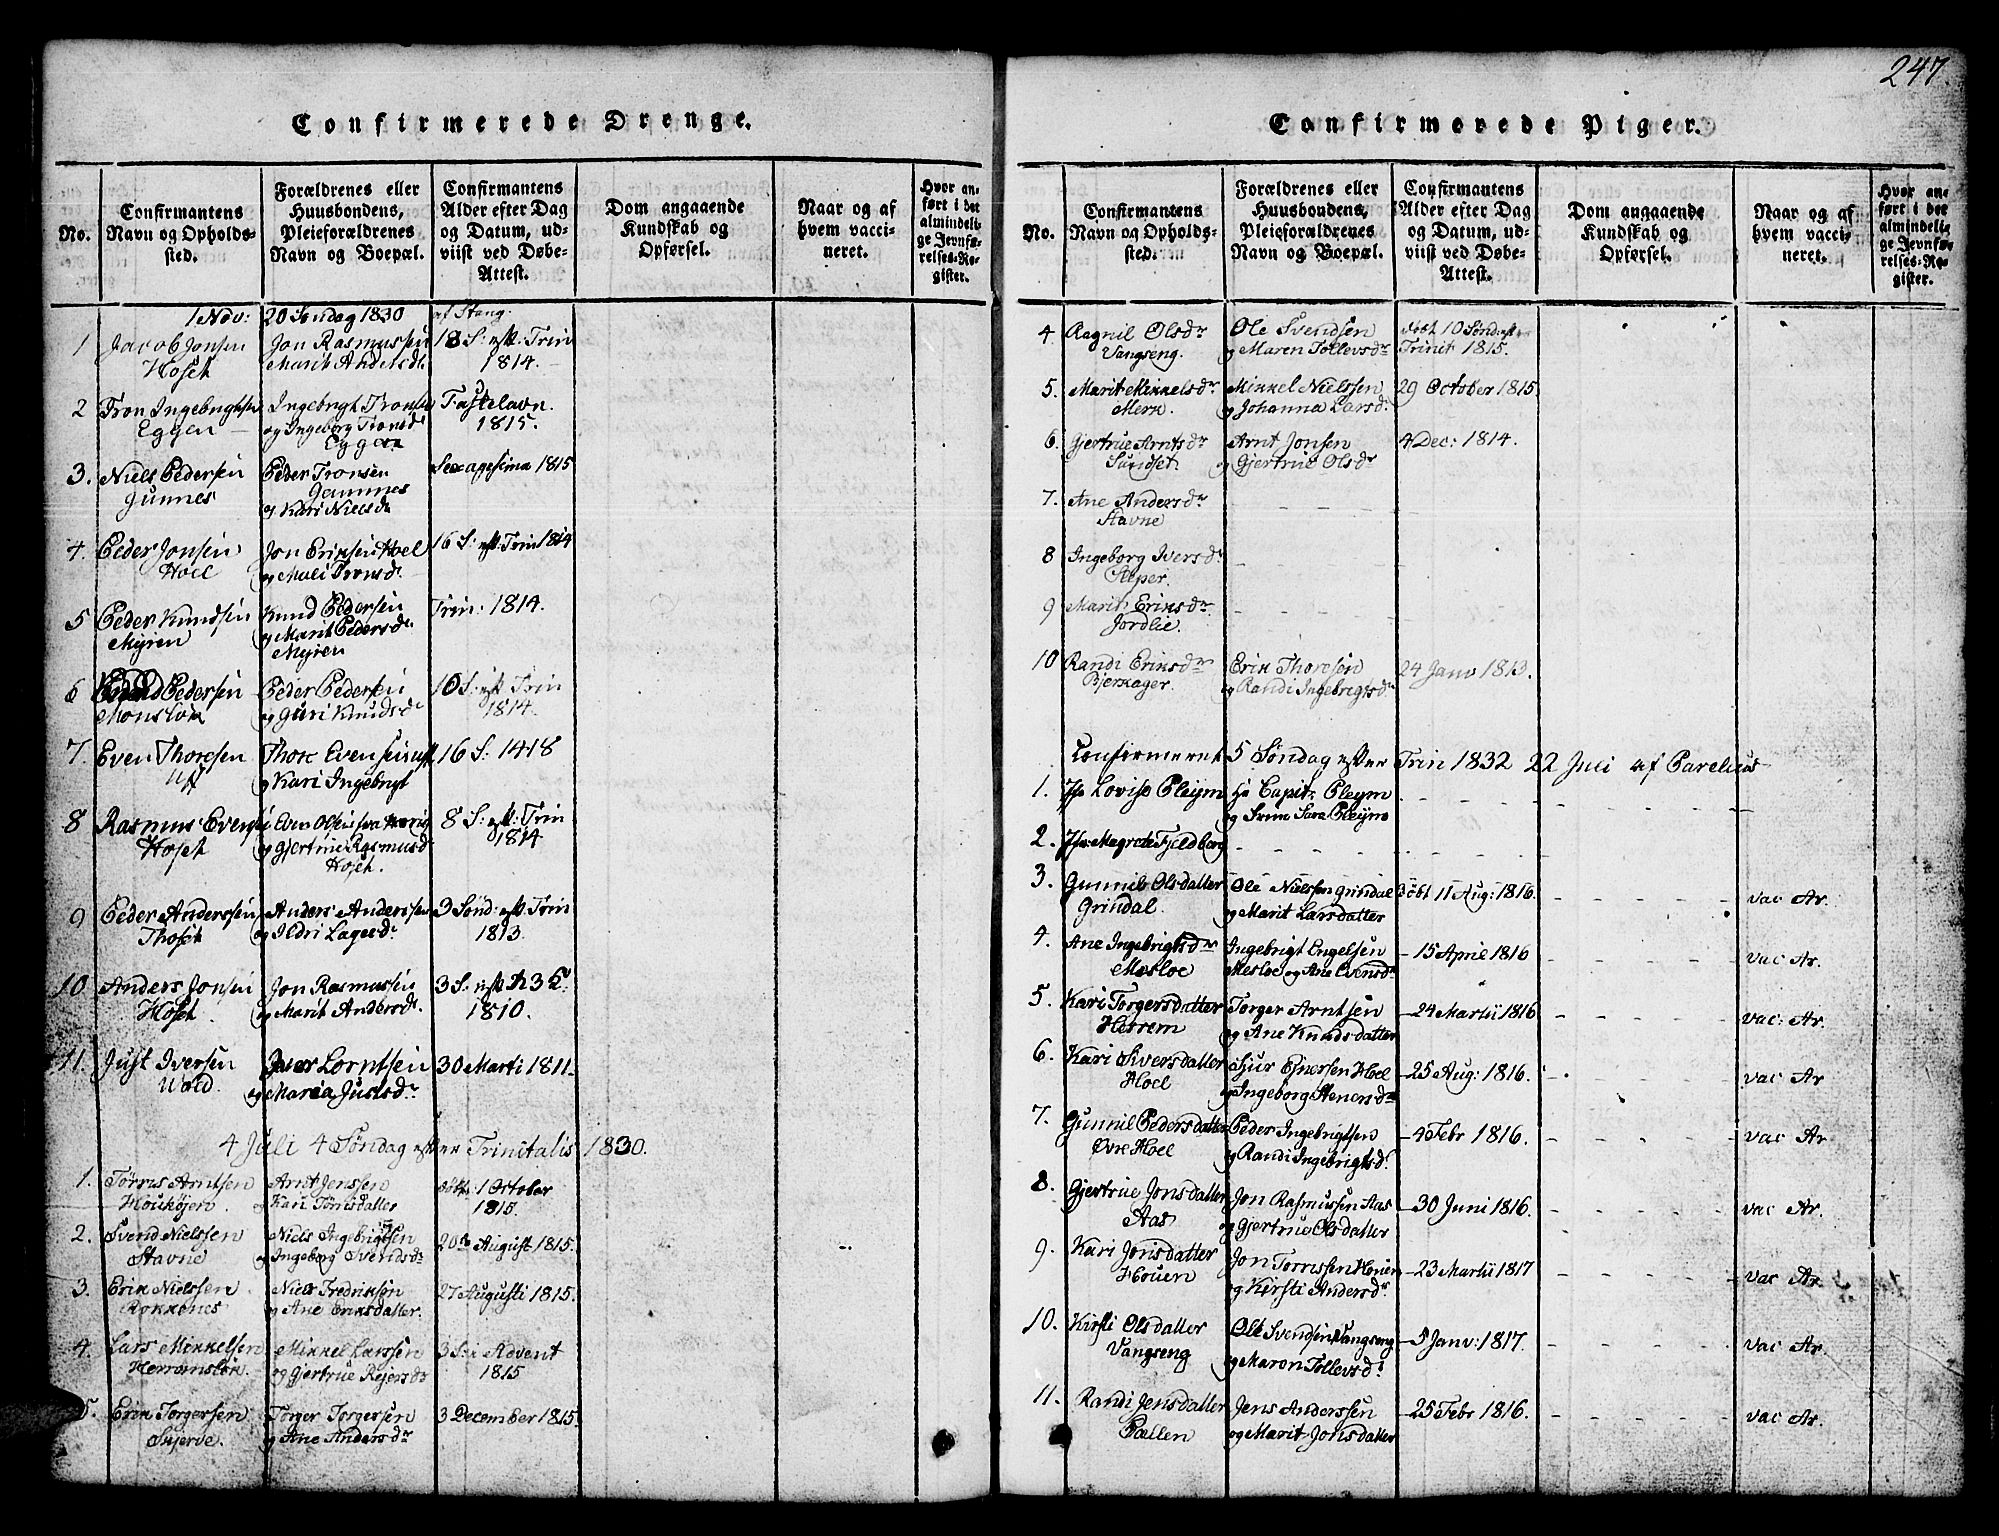 247.
Confirmerede Drenge.
No.
Confirmantens Navn og Opholds-
sted.
Forældrenes eller
Huusbondens,
Pleieforældrenes
Navn og Boepæl.
Confirmantens
Alder efter Dag
og Datum, ud-
viist ved Døbe-
Attest.
Dom angaaende
Kundskab og
Opførsel.
Naar og af
hvem vacci-
neret.
Hvor an-
ført i det
almindeli-
ge Jevnfø-
relses-Re-
gister.
1 Nov: 20 Søndag 1830 af Stang.
1 Jacob Jonsen Jon Rasmussen 18 S: eft. Trin
Hoset Marit Andersd. 1814.
2 Tron Ingebrigtsen Ingebrigt Tronsen Fastelavn
Eggen og Ingeborg Tronsd 1815.
Eggen
3. Niels Pedersen Peder Tronsen Sexagesima 1815
Gunnes
og Kari Nielsd.
4. Peder Jonsen Jon Eriksen Hoel 16 S: eft. Trin 1814
Hoel og Mali Tronsd.
5 Peder Knudsen Knud Pedersen Trin: 1814.
Myren og Marit Pedersd.
Myren
6 Pedersen Peder Pedersen 10 S: eft. Trin
og Guri Knudsd 1814.
7. Even Thoresen Thore Evensen 16 S: 1418
og Kari Ingebrigt
8 Rasmus Evens 8 S: eft: Trin
Hoset og Gjertrue Rasmusd 1814
Hoset.
9 Peder Anderssen Anders Anderssen 3 Sønd: eft. Trin
Thoset og Ildri Lagesd. 1813.
10 Anders Jonsen Jon Rasmussen 3 S: eft. H 3 K.
Hoset. og Marit Andersd. 1810.
11. Just Iversen Iver Lorntsen 30 Marti 1811
Wold. og Maria Justsd.
4 Juli 4 Søndag efter Trinitatis 1830.
1. Tørris Arntsen Arnt Jenssen 1 October
og Kari Tørrisdatter 1815.
2. Svend Nielssen Niels Ingebrigtsen 20 August 1815.
Stavne og Ingeborg Svendsdr
3. Erik Nielssen Niels Fredriksen 27 Augusti 1815.
Rokkones og Ane Eriksdatter.
4. Lars Mikkelsen Mikkel Larssen 3 S: i Advent
Herremsløk. og Gjertrue Reiersdr 1815
5. Erik Torgersen Torger Torgersen 3 December 1815.
Skjerve. og Ane Andersdr
Confirmerede Piger.
No.
Confirmantens
Navn og Opholds-
sted.
Forældrenes eller
Huusbondens,
Pleieforældrenes
Navn og Boepæl.
Confirmantens
Alder efter Dag
og Datum, ud-
viist ved Døbe-
Attest.
Dom angaaende
Kundskab og
Opførsel.
Naar og af
hvem vacci-
neret.
Hvor an-
ført i det
almindeli-
ge Jevnfø-
relses-Re-
gister.
4 Ragnil Olsdr Ole Svendsen døbt 10 Sønd: eft
Vangseng. og Maren Tollevsdr Trinit 1815.
5. Marit Mikkelsdr Mikkel Nielssen 29 October 1815
Merk og Johanna Larsd.
6. Gjertrue Arntsdr Arnt Jonsen 4 Dec: 1814.
Sundset og Gjertrue Olsdr
7. Ane Andersdr
Stavne
8 Ingeborg Iversdr
Alper.
9 Marit Eriksdr
Jordlie.
10 Randi Eriksdr Erik Thoresen 24 Janv 1813.
Bjerkager. og Randi Ingebrigtsd.
Confirmeret 5 Søndag efter Trin 1832 22 Juli af Parelius
1. Jfr Lovise Pleym Hr Capit: Pleym
og Sara Pleym
2. Jfr. Magrete Fjeldberg
3. Gunnil Olsdatter Ole Nielssen Grindal døbt 11 Aug: 1816 vac Ar.
Grindal. og Marit Larsdatter
4. Ane Ingebrigtsdr Ingebrigt Engelsen 15 April 1816 vac Ar.
Mesloe Mesloe og Ane Evensdr
5. Kari Torgersdatter Torger Arntsen 24 Martii 1816 vac: Ar.
Herrem og Ane Knudsdatter
6. Kari Siversdatter Sjur Ejnersen Hoel 25 Aug: 1816. vac Ar
Hoel og Ingeborg Stenersdr
7. Gunnil Pedersdatter Peder Ingebrigtsen 4 Febr 1816. vac Ar
Øvre Hoel og Randi Ingebrigtsd.
8. Gjertrue Jonsdatter Jon Rasmussen Aas 30 Juni 1816. vac Ar.
Aas og Gjertrue Olsdatter
9. Kari Jonsdatter Jon Torrissen Houen 23 Martii 1817 vac Ar.
Houen og Kirsti Andersdr
10. Kirsti Olsdatter Ole Svendsen Vangseng 5 Janv: 1817. vac Ar
Vangseng og Maren Tollevsd.
11. Randi Jensdatter Jens Anderssen 25 Febr 1816. vac Ar.
Pællen og Marit Jonsdatter